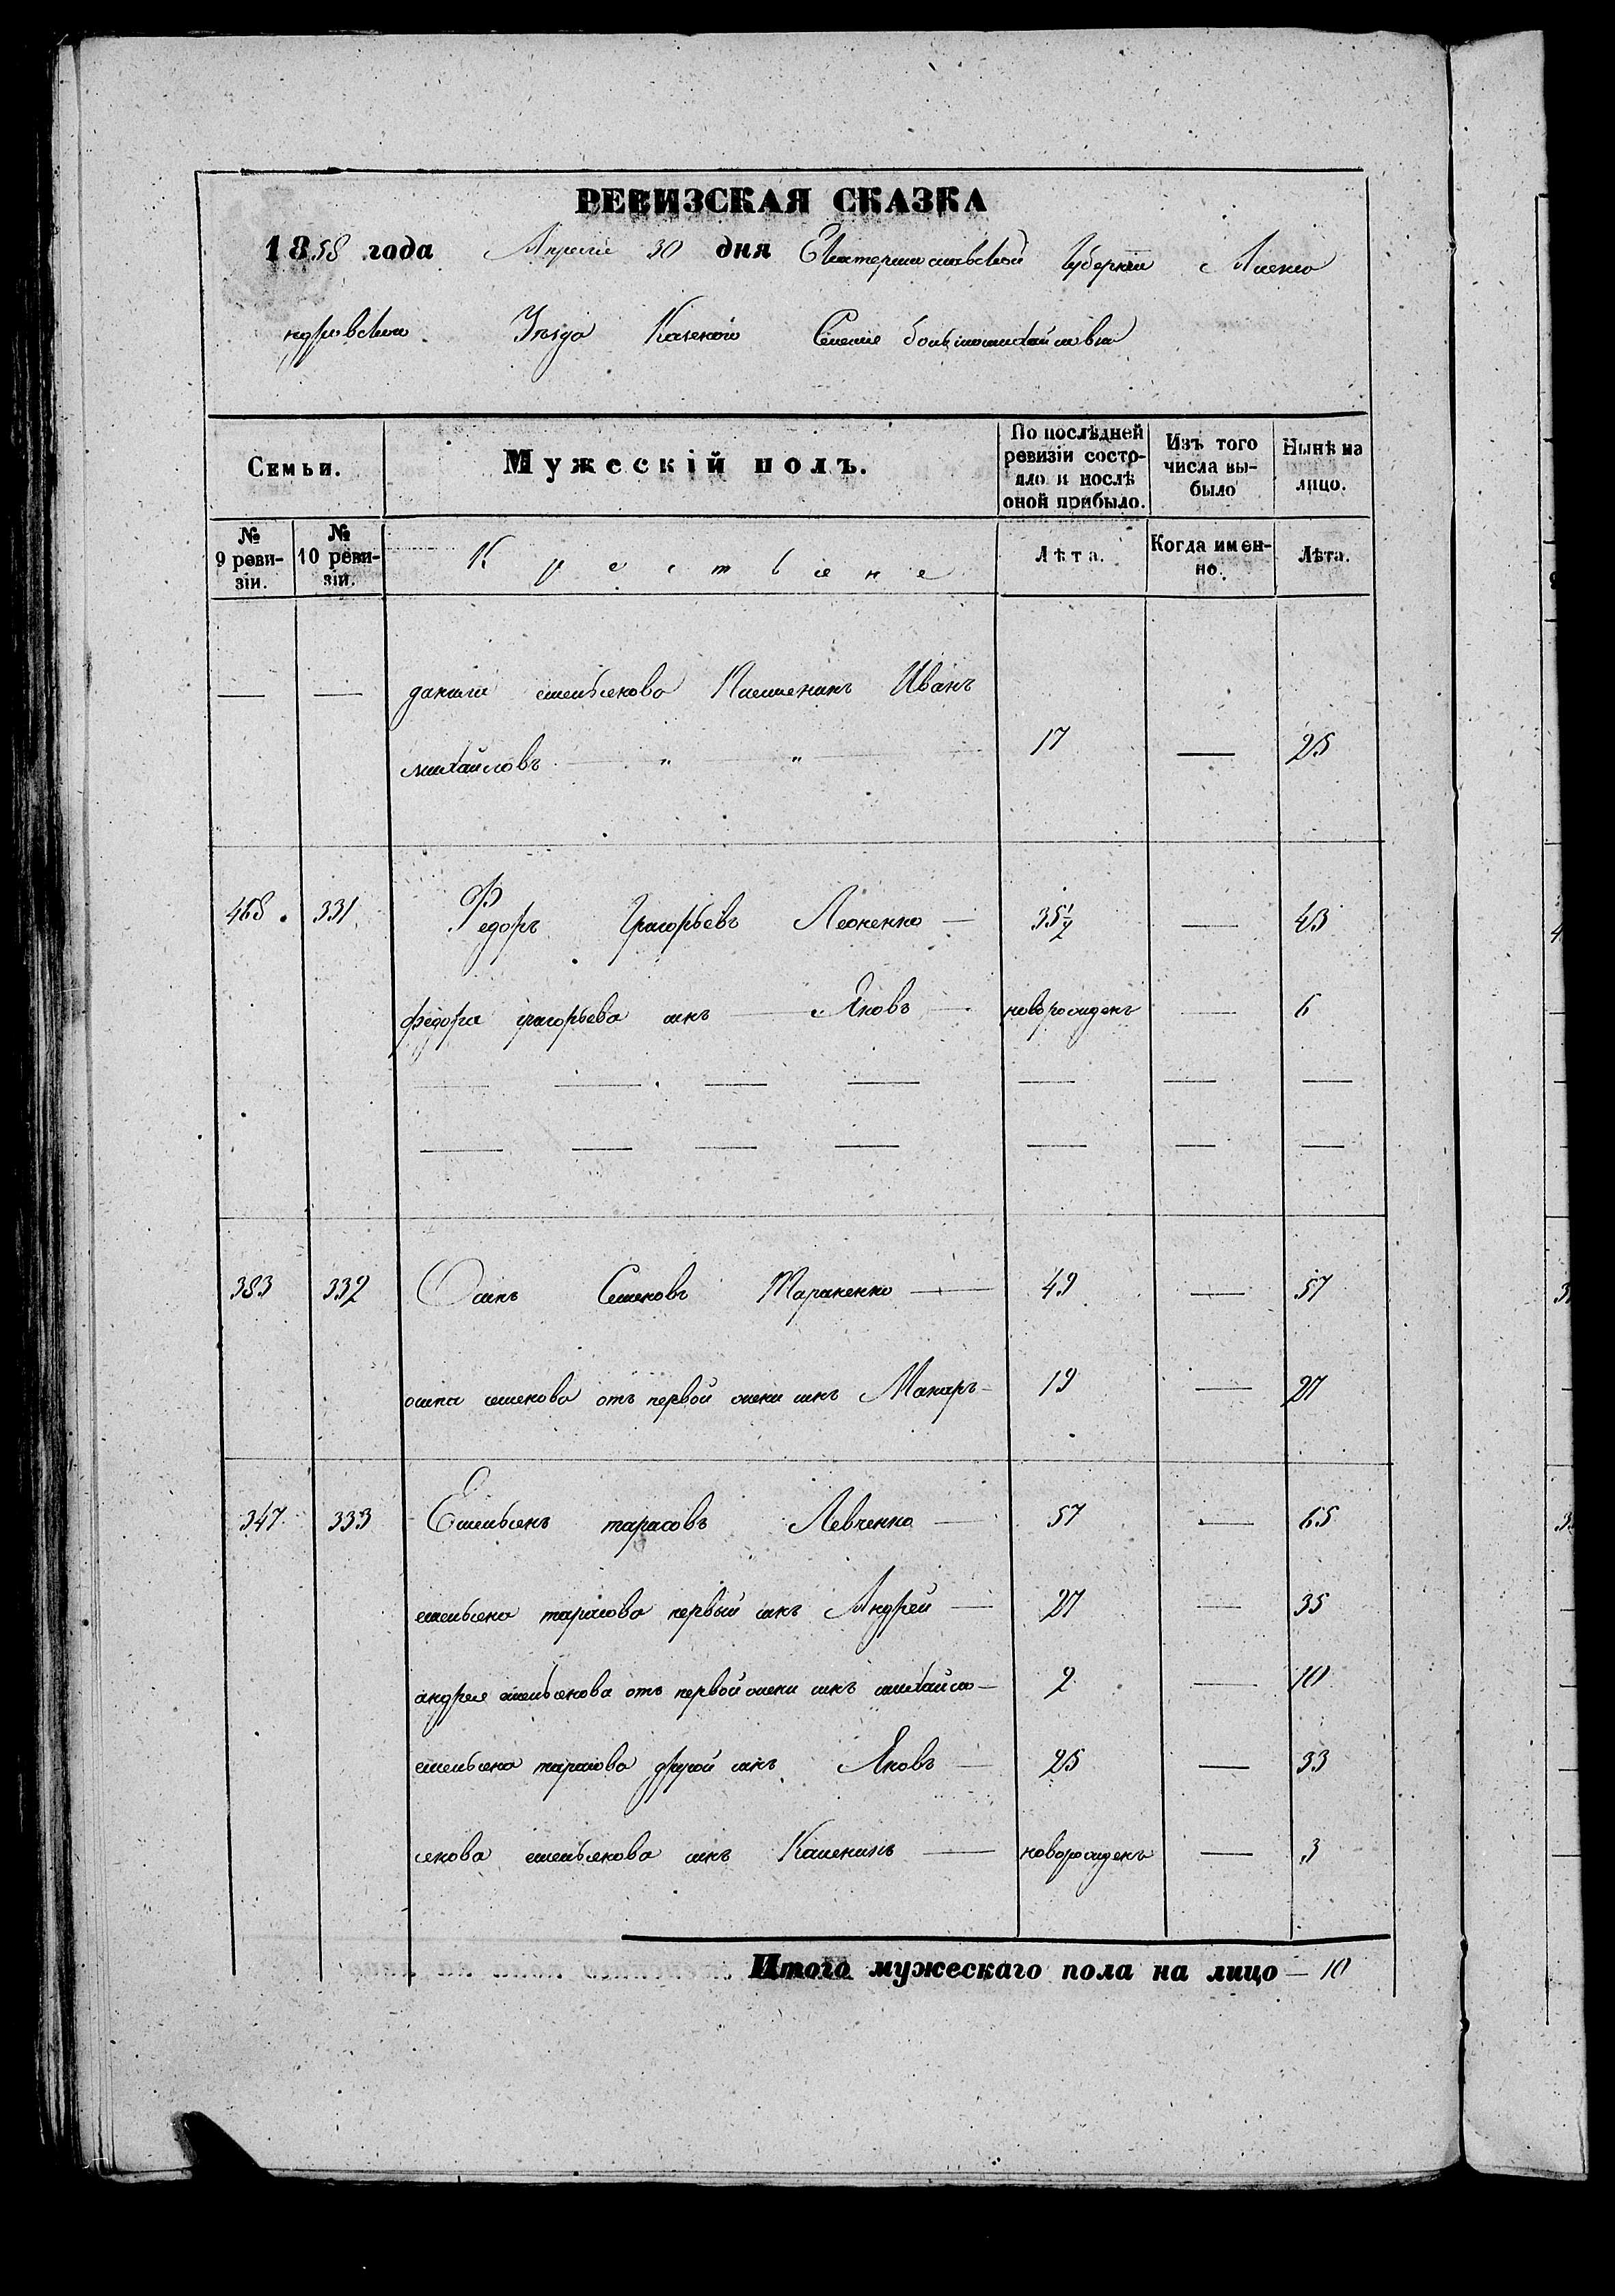 РЕВИЗСКАЯ СКАЗКА
1858 года Апреля 30 дня Екатеринославской Губернiи Алекса
ндровскаго Уѣзда Казенаго Селенiя большомихайловки
Семьи. Мужескiй полъ. По послѣдней ревизiи состо- яло и послѣ оной прибыло. Изъ того числа вы- было Нынѣ на лицо.
№ 9 реви- зiи. № 10 реви- зiи. Крестьяне Лѣта. Когда имен- но. Лѣта.
— — данила емельянова Племеникъ Иванъ
михайловъ — " — " — 17 — 25
468. 331 Федоръ Григорьевъ Леоненко — 35 1/2 — 43
федора григорьева сынъ — Яковъ — новорожденъ — 6
— — — — — — —
— — — — — — —
383 332 Осипъ Семеновъ Тараненко — 49 — 57
осипа семенова отъ первой жены сынъ Макаръ — 19 — 27
347 333 Емельянъ тарасовъ Левченко — 57 — 65
емельяна тарасова первый сынъ Андрей — 27 — 35
андрея емельянова отъ первой жены сынъ михайло — 2 — 10
емельяна тарасова другой сынъ Яковъ — 25 — 33
якова емельянова сынъ Каленикъ — новорожденъ — 3
Итого мужескаго пола на лицо — 10